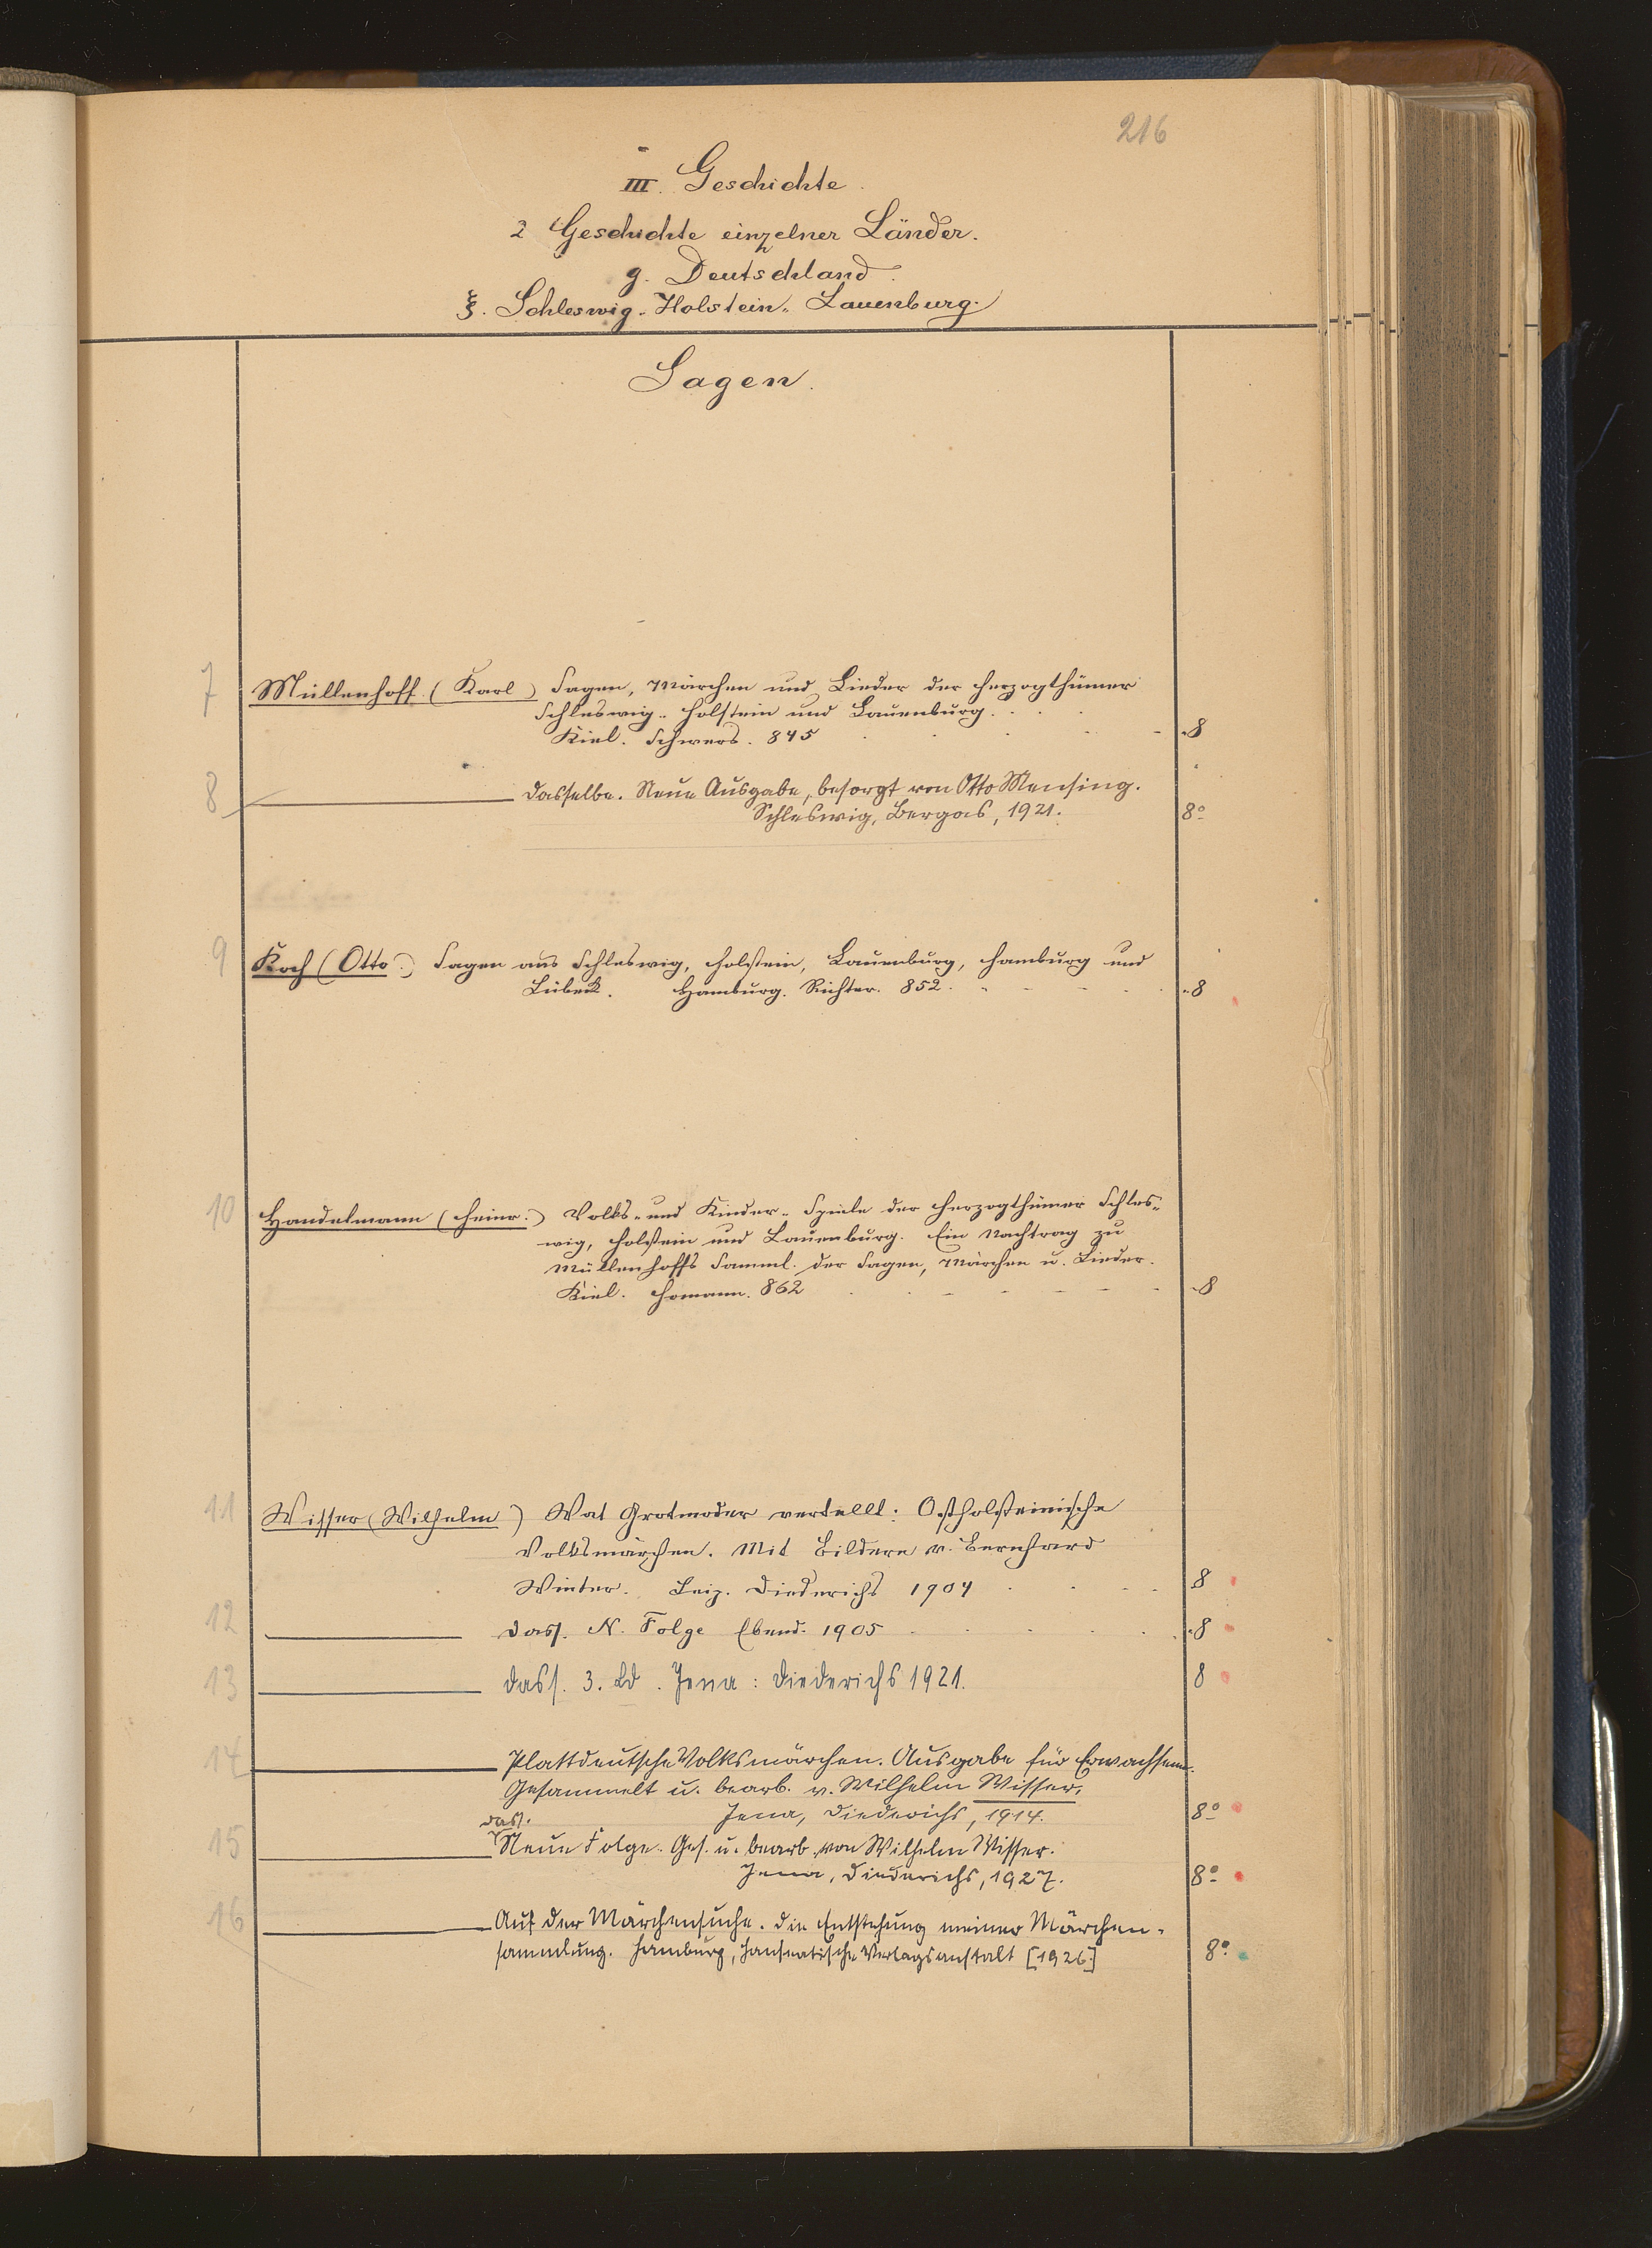 216
III. Geschichte.
2 Geschichte einzelner Länder.
g. Deutschland.
ξ. Schleswig-Holstein-Lauenburg.
Sagen.
7 Müllenhoff (Karl) Sagen, Märchen und Lieder der Herzogthümer
Schleswig-Holstein und Lauenburg.
Kiel. Schwers. 845 8
8 dasselbe. Neue Ausgabe, besorgt von Otto Mensing.
Schleswig, Bergas, 1921. 8°
9 Koch (Otto.) Sagen aus Schleswig, Holstein, Lauenburg, Hamburg und
Lübeck. Hamburg. Richter. 852. 8
10 Handelmann (Heinr.) Volks- und Kinder-Spiele der Herzogthümer Schles-
wig, Holstein und Lauenburg. Ein Nachtrag zu
Müllenhoffs Samml. der Sagen, Märchen u. Lieder.
Kiel. Homann. 862 8
11 Wisser (Wilhelm) Wat Grotmoder vertellt: Ostholsteinische
Volksmärchen. Mit Bildern v. Bernhard
Winter. Leiz. Diederichs 1904 8
12 dass. N. Folge Ebend. 1905 8
13 dass. 3. Bd. Jena: Diederichs 1921. 8
14 Plattdeutsche Volksmärchen. Ausgabe für Erwachsene.
Gesammelt u. bearb. v. Wilhelm Wisser,
Jena, Diederichs, 1914. 8°
dass.
15 Neue Folge. Ges. u. bearb. von Wilhelm Wisser.
Jena, Diederichs, 1927. 8°
16 Auf der Märchensuche. Die Entstehung meiner Märchen-
sammlung. Hamburg, Hanseatische Verlagsanstalt [1926] 8°